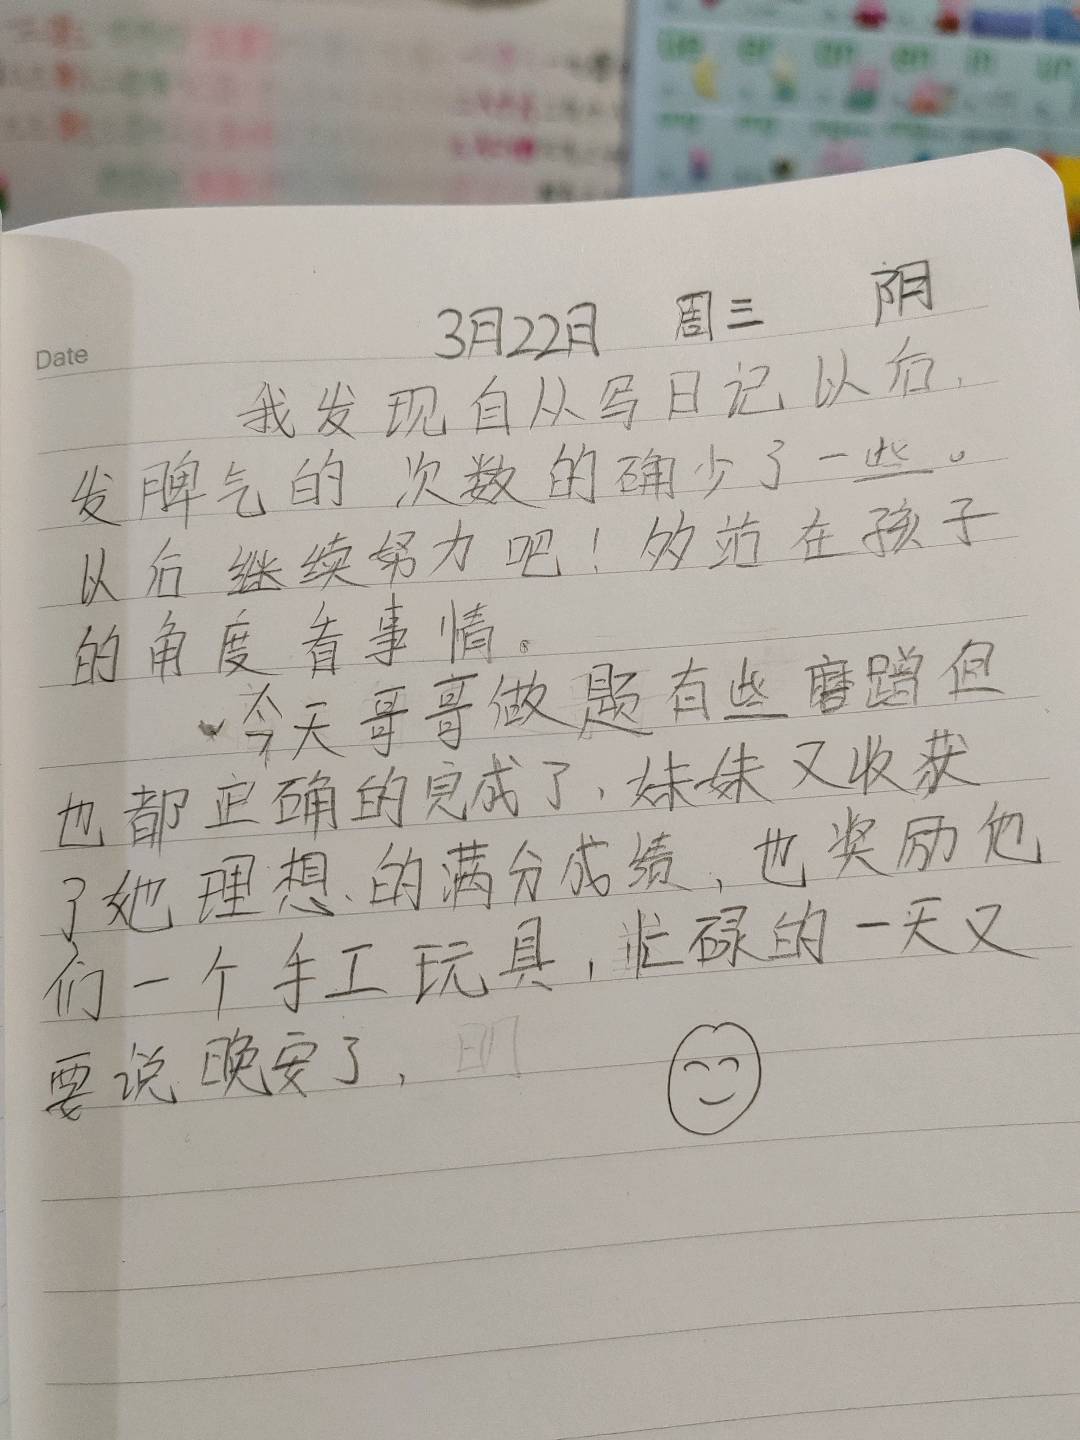 3月22日 周三 阴
Date
我发现自从写日记以后,
发脾气的次数的确少了一些。
以后继续努力吧!多站在孩子
的角度看事情。
今天哥哥做题有些磨蹭但
也都正确的完成了,妹妹又收获
了她理想的满分成绩,也奖励他
们一个手工玩具,忙碌的一天又
要说晚安了,